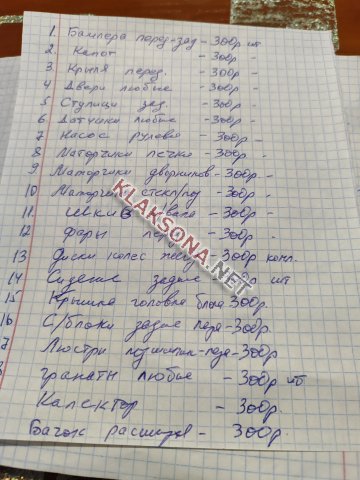 1 Бампера перед-зад - 300р шт
2 Капот - 300р -
3 Крылья перед. - 300р -
4 Двери любые - 300р -
5 Ступицы зад. - 300р -
6 Датчики любые - 300р -
7 Насос рулевой - 300р -
8 Маторчики печки - 300р -
9 Маторчики дворников - 300р -
10 Маторчики стекл/под - 300р -
11 вала - 300р -
12 фары пер - 300р -
13 Диски колес - 300р комп.
14 Сидение задние шт
15 Крышка головки блока 300р.
16 С/блоки задние - 300р.
Люстры - 300р
гранаты любые - 300р шт
Калектор - 300р.
Бачок расширит - 300р.
KLAKSONA.NET